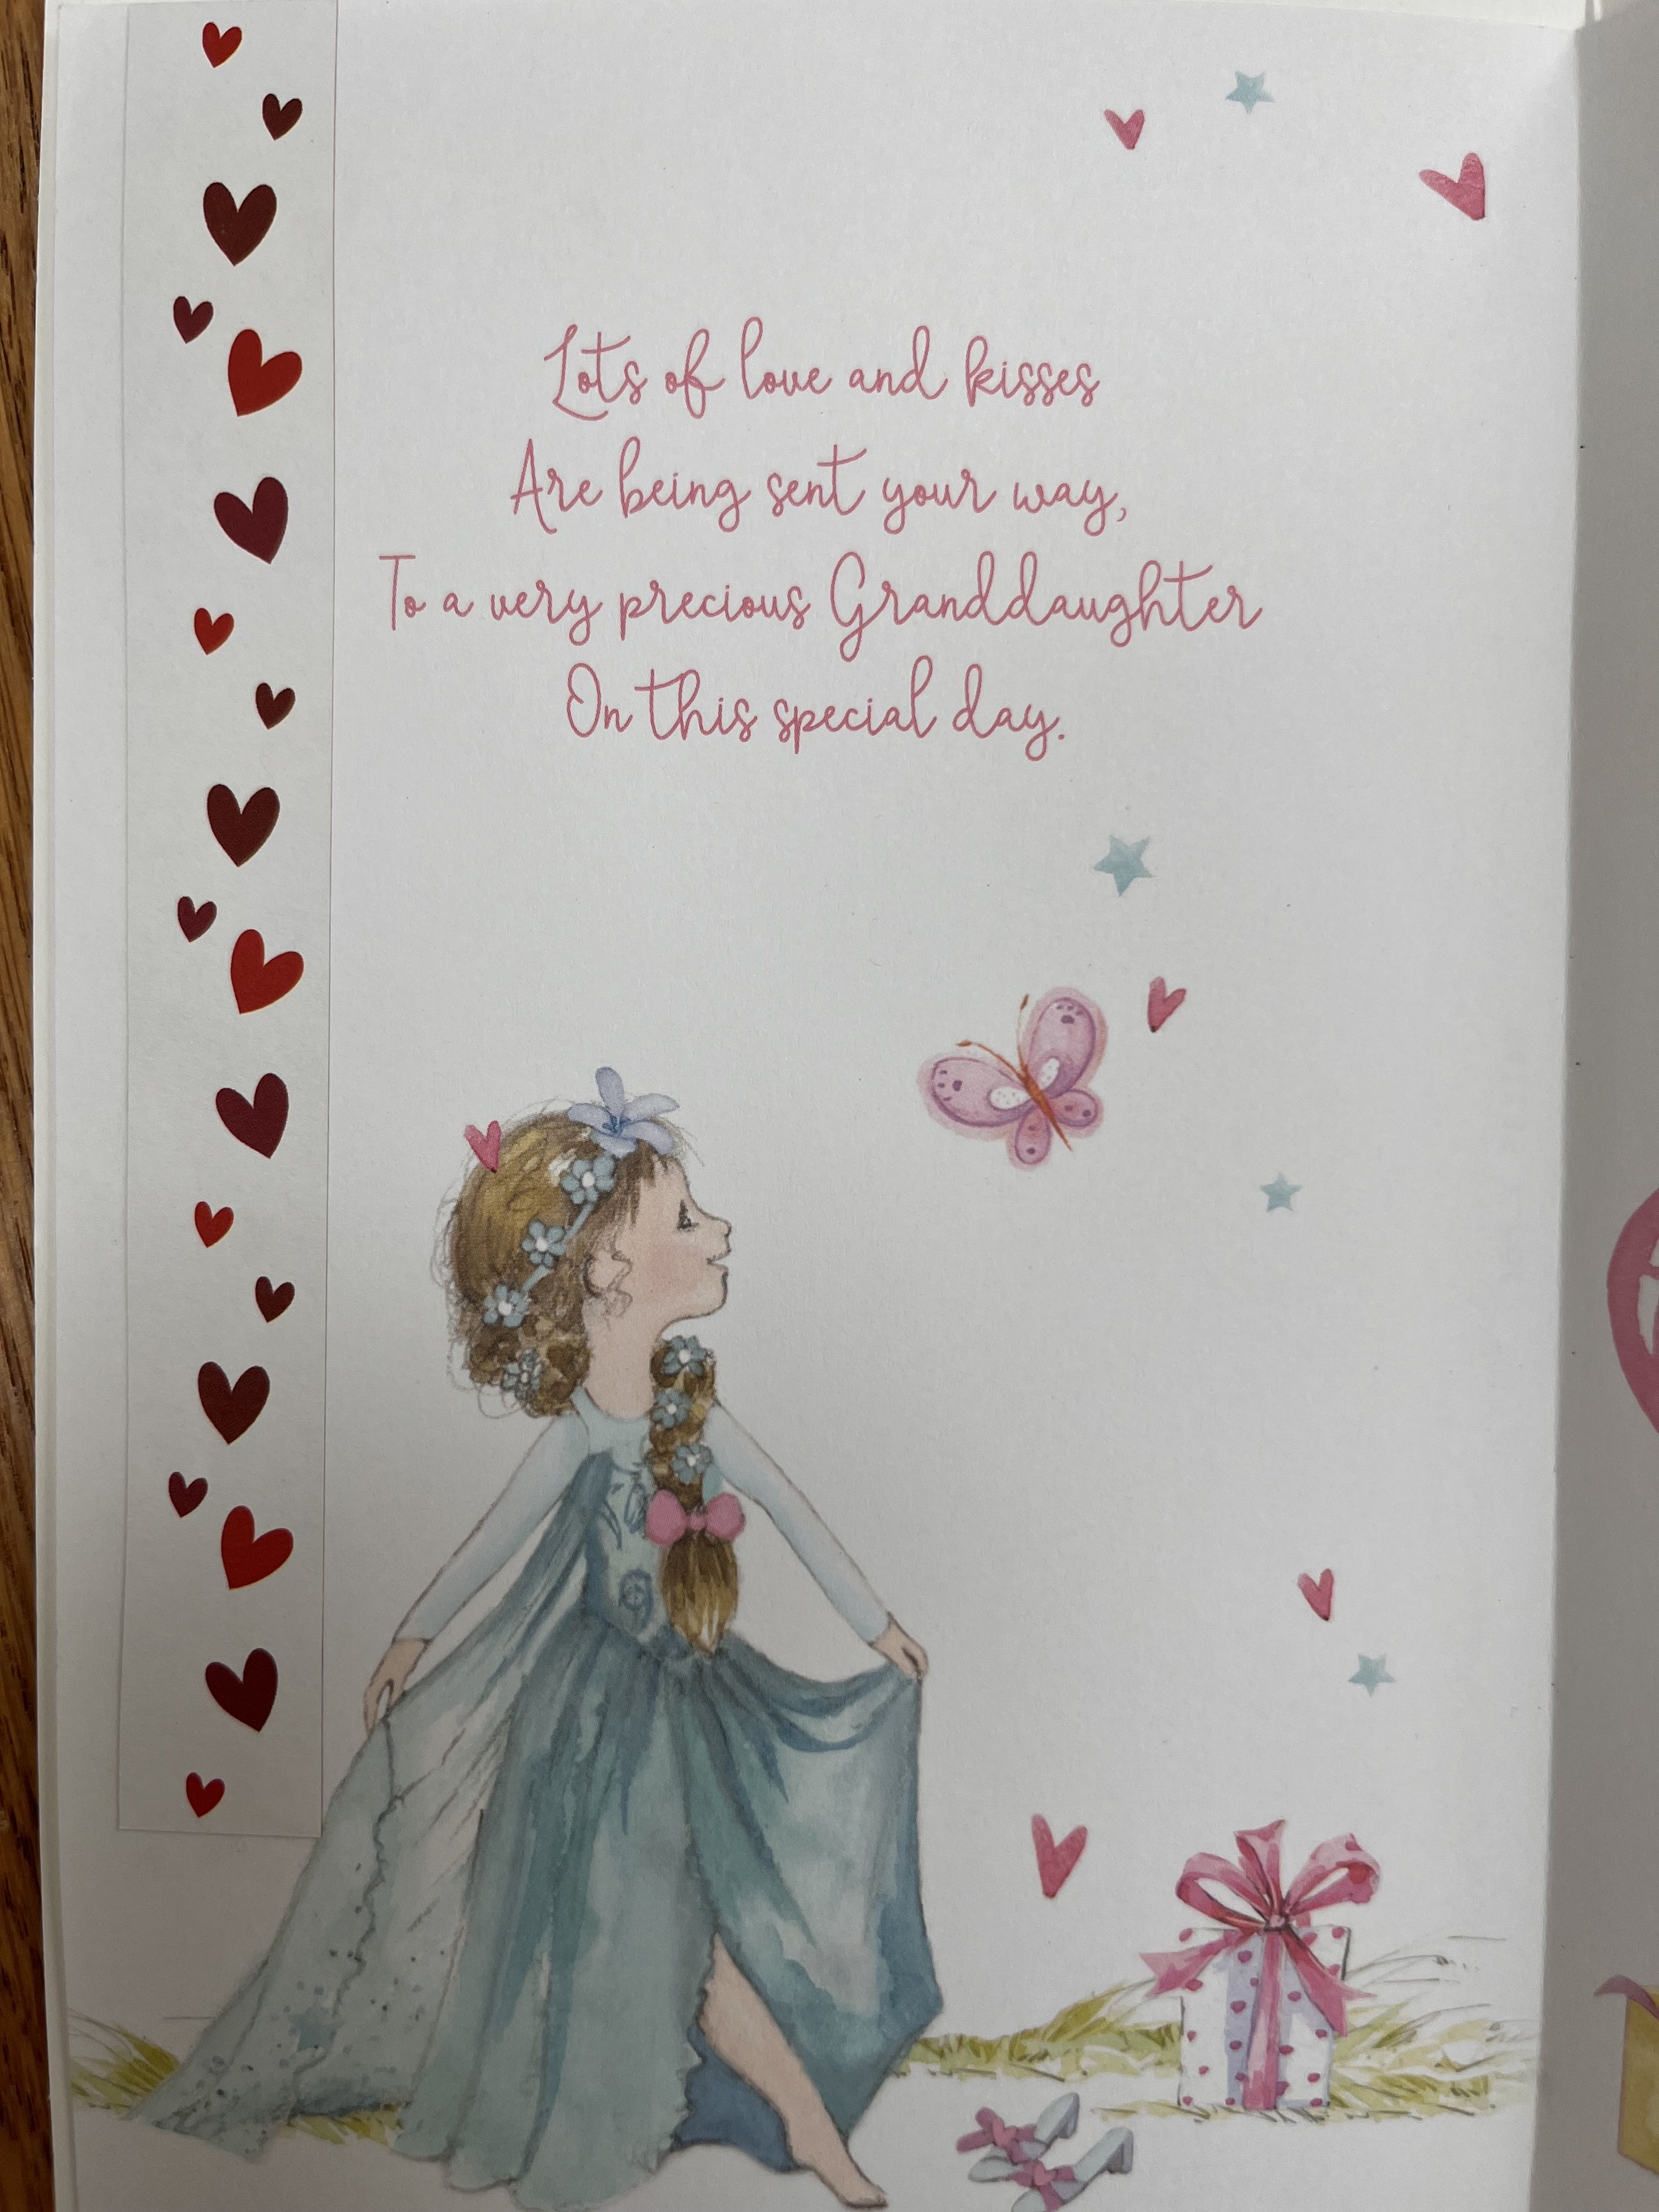 Lots of love and kisses
Are being sent your way,
To a very precious Granddaughter
On this special day.